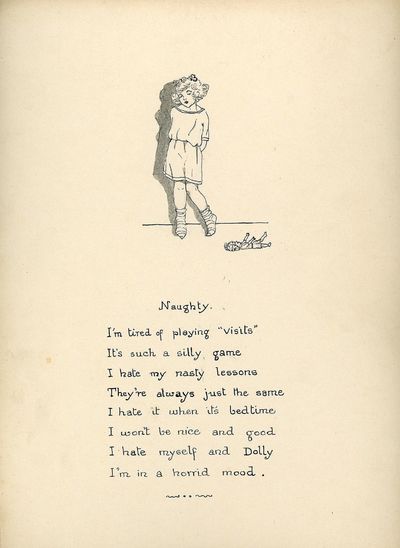 Naughty.
I'm tired of playing "visits"
It's such a silly game
I hate my nasty lessons
They're always just the same
I hate it when it's bedtime
I won't be nice and good
I hate myself and Dolly
I'm in a horrid mood.